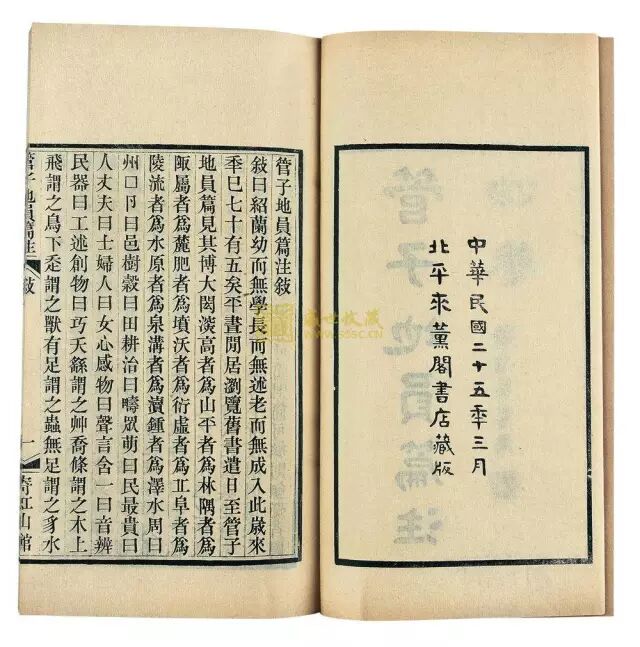 中華民國二十五年三月
北平來薰閣書店藏版
管子地員篇注敍
敍曰紹蘭幼而無學長而無述老而無成入此歲來
秊巳七十有五矣平晝閒居瀏覽舊書遣日至管子
地員篇見其博大閎深高者爲山平者爲林隅者爲
陬屬者爲麓肥者爲墳沃者爲衍虛者爲丘阜者爲
陵流者爲水原者爲泉溝者爲瀆鍾者爲澤水周曰
州口卪曰邑樹穀曰田耕治曰疇眾萌曰民最貴曰
人丈夫曰士婦人曰女心感物曰聲言含一曰音辨
民器曰工述創物曰巧天繇謂之艸喬條謂之木上
飛謂之鳥下走謂之獸有足謂之蟲無足謂之豸水
管子地員篇注 敍 一 山館
盛世收藏
SSSC.CN